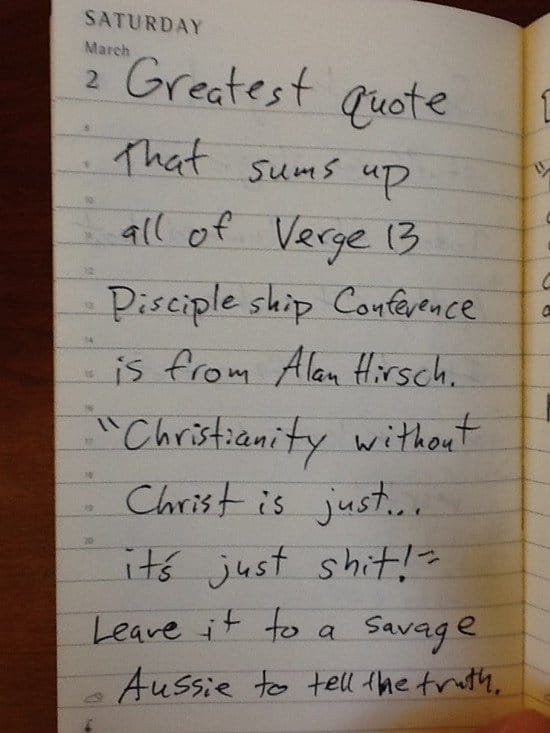 SATURDAY
March
2 Greatest quote
That sums up
all of Verge 13
Discipleship Conference
is from Alan Hirsch.
"Christianity without
Christ is just...
it's just shit!"
Leave it to a savage
Aussie to tell the truth.